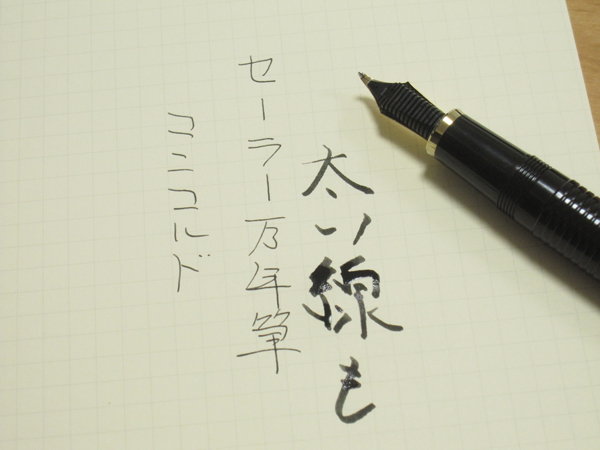 太い線も
セーラー万年筆
コンコルド